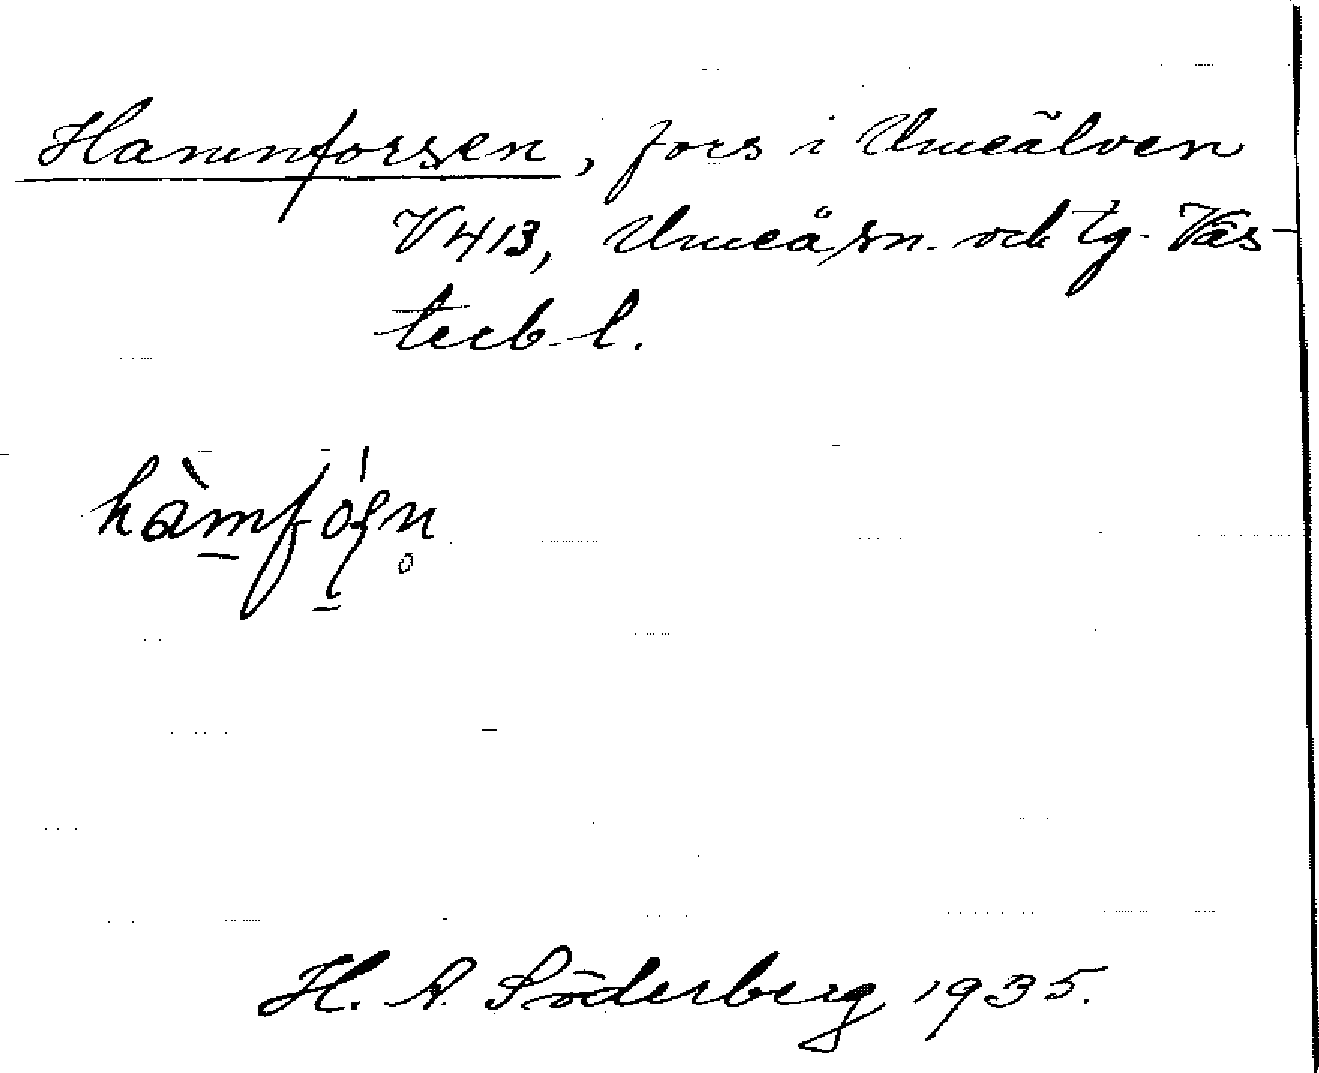 Hammforsen, fors i Umeälven
V413, Umeå sn. och tg. Väs-
terb. l.
hàm̱fóʂ̱n̥
H. A. Söderberg 1935.